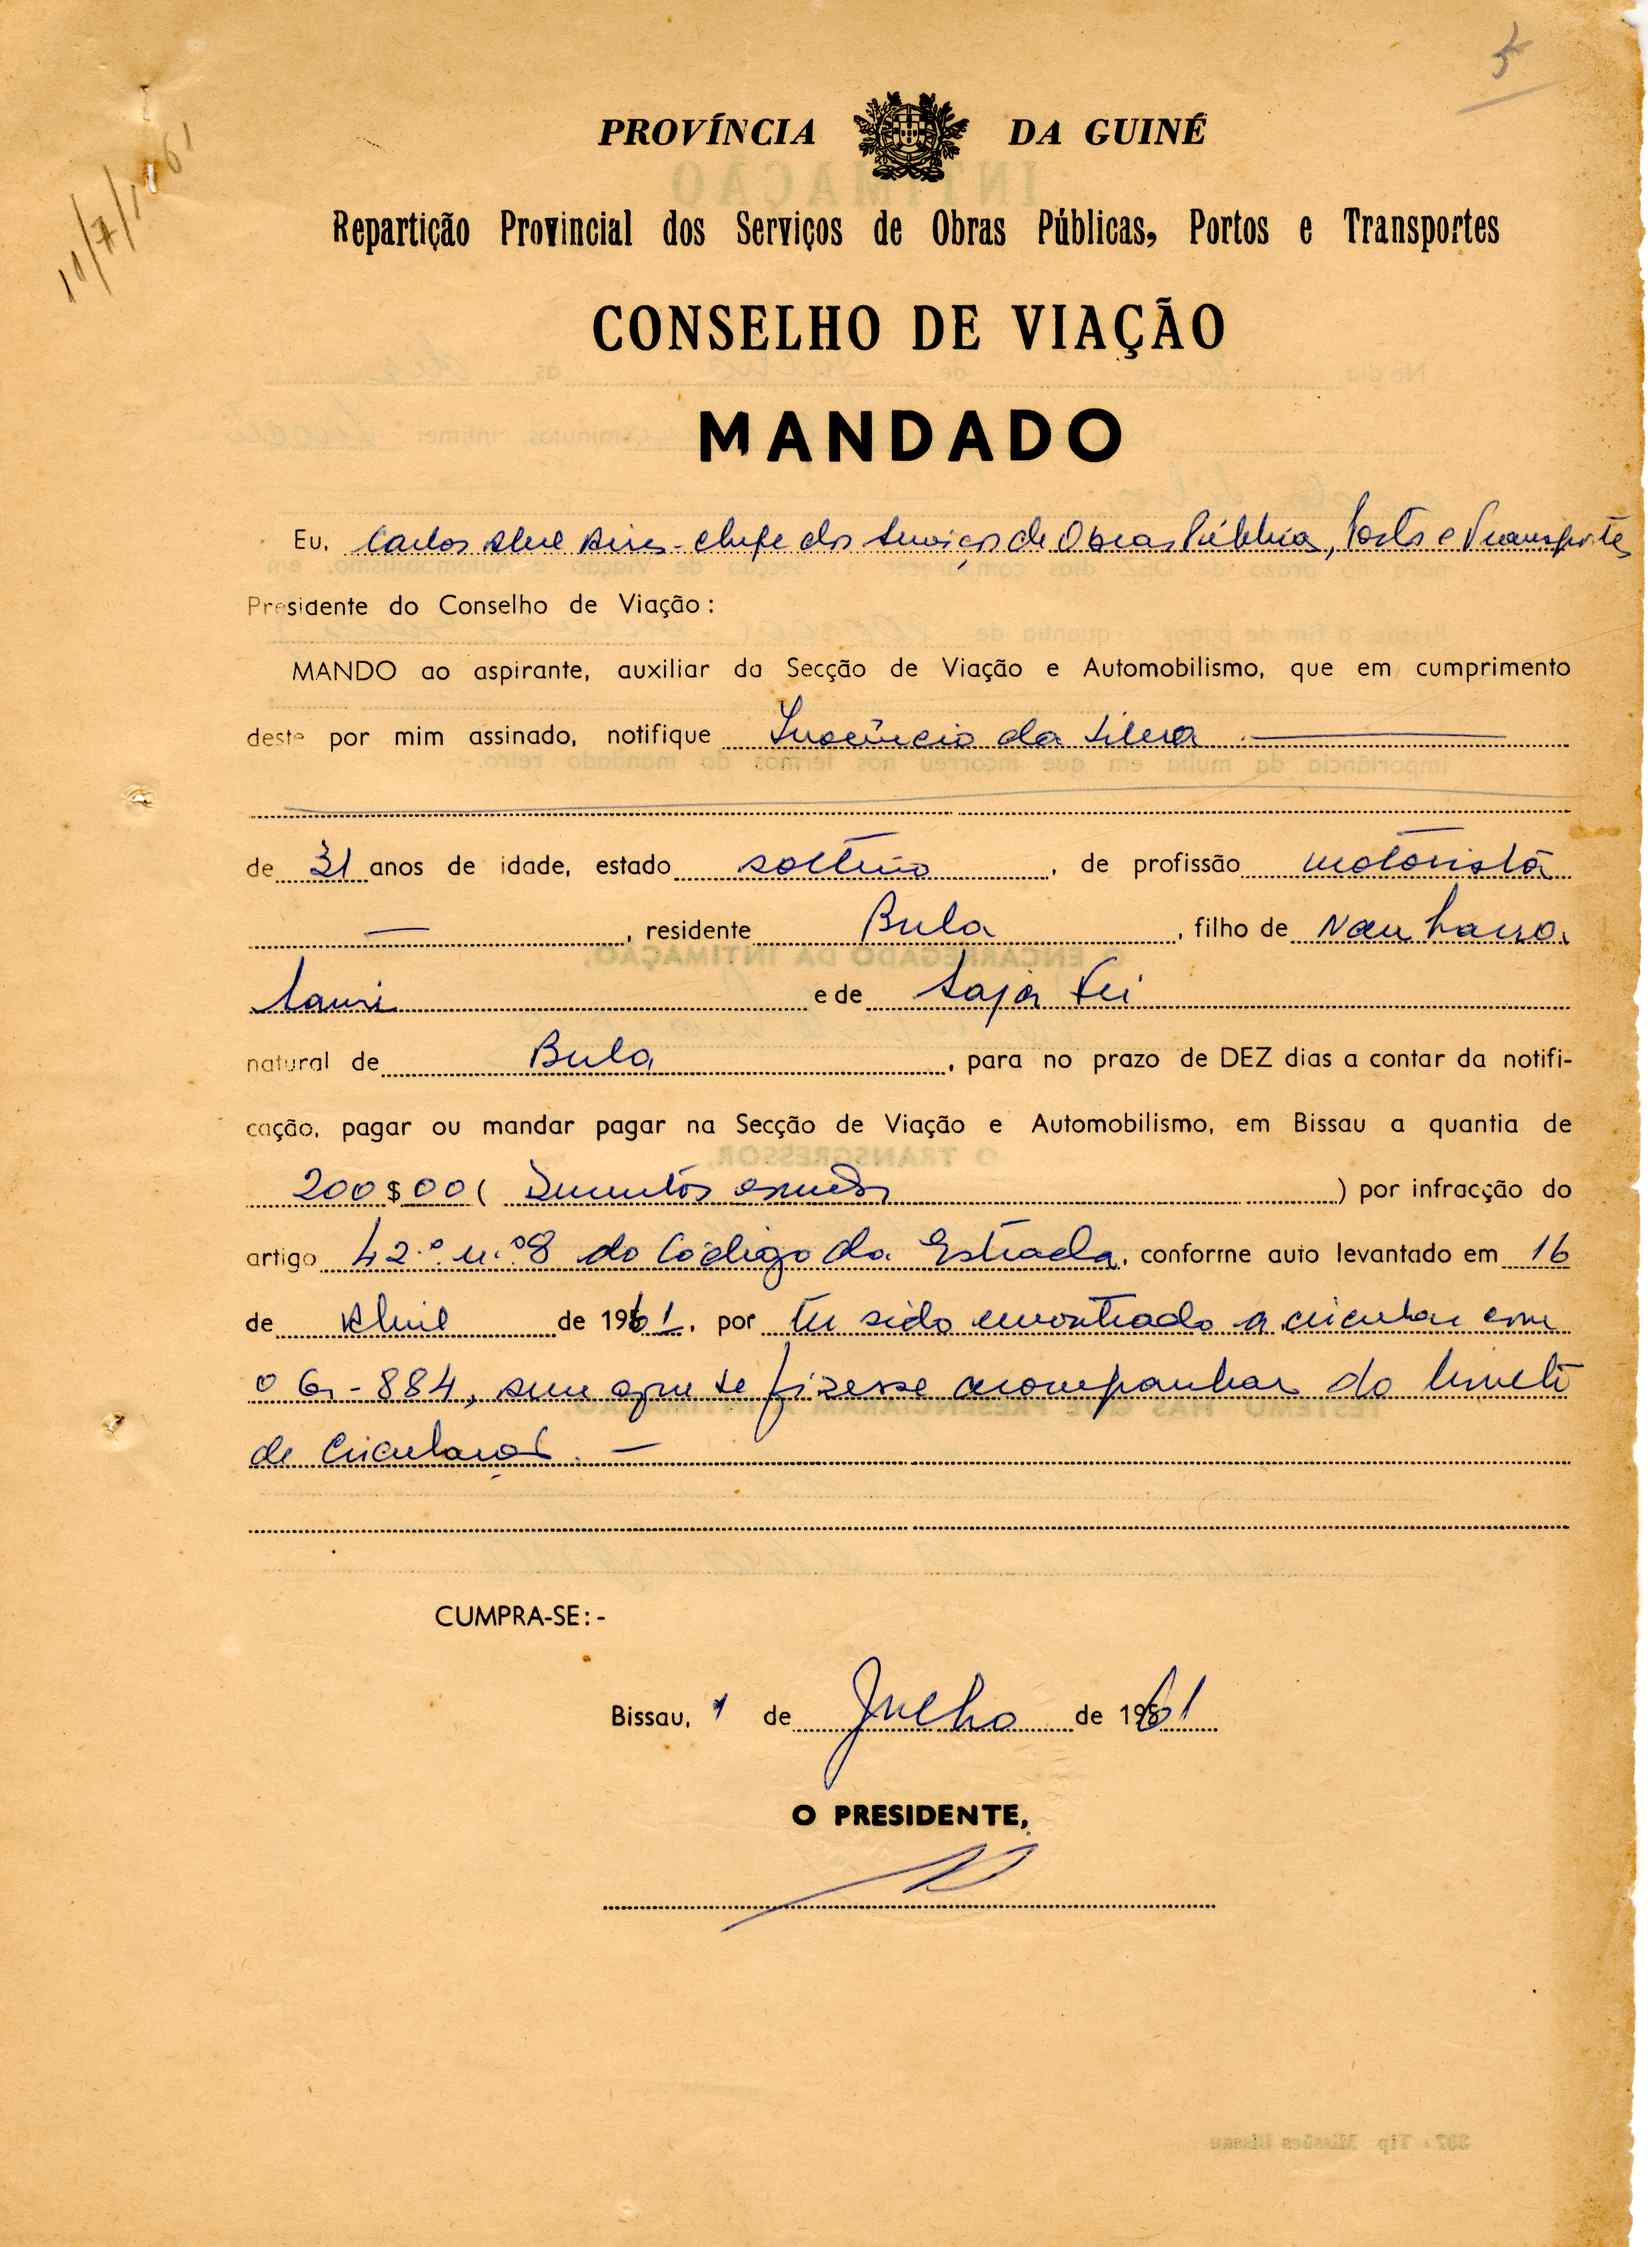 5
11/7/1961
PROVÍNCIA DA GUINÉ
Repartição Provincial dos Serviços de Obras Públicas, Portos e Transportes
CONSELHO DE VIAÇÃO
MANDADO
Eu, Carlos Abel Aires - chefe dos Serviços de Obras Públicas, Portos e Transportes
Presidente do Conselho de Viação:
MANDO ao aspirante, auxiliar da Secção de Viação e Automobilismo, que em cumprimento
deste por mim assinado, notifique Inocêncio da Silva
de 31 anos de idade, estado solteiro, de profissão motorista
—, residente Bula, filho de
e de
natural de Bula, para no prazo de DEZ dias a contar da notifi-
cação, pagar ou mandar pagar na Secção de Viação e Automobilismo, em Bissau a quantia de
200$00 ( Duzentos escudos ) por infracção do
artigo 42.º n.º 8 do Código da Estrada, conforme auto levantado em 16
de Abril de 1961, por ter sido encontrado a circular com
o G-884, sem que se fizesse acompanhar do livrete
de circulação. —
CUMPRA-SE:-
Bissau, de Julho de 1961
O PRESIDENTE,